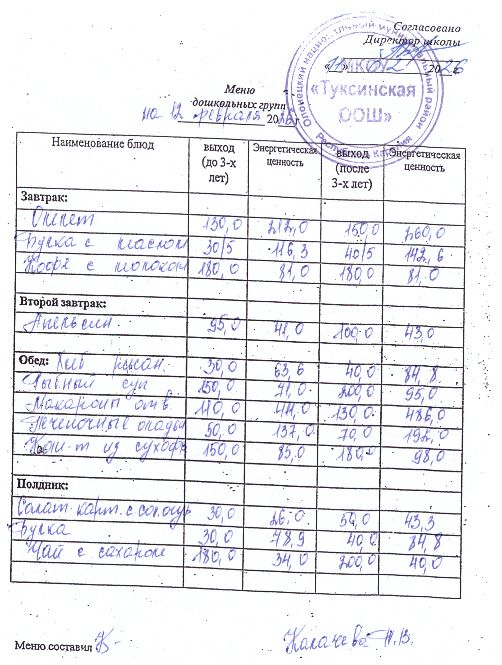 Согласовано
Директор школы
Олонецкий национальный муниципальный район
МКОУ
«Туксинская
ООШ»
Республика Карелия
Меню
дошкольных групп
на 12 февраля 2026 г
Наименование блюд выход (до 3-х лет) Энергетическая ценность выход (после 3-х лет) Энергетическая ценность
Завтрак:
Омлет 130,0 212,0 150,0 260,0
Булка с маслом 30/5 116,3 40/5 142,6
Кофе с молоком 180,0 81,0 180,0 81,0
Второй завтрак:
Апельсин 95,0 41,0 100,0 43,0
Обед: Хлеб ржан. 30,0 63,6 40,0 84,8
Рыбный суп 150,0 71,0 200,0 95,0
Макароны отв. 110,0 411,0 130,0 486,0
Печеночные оладьи 50,0 137,0 70,0 192,0
Комп-т из сухофр 150,0 85,0 180,0 98,0
Полдник:
Салат карт. с сол.огур 30,0 26,0 50,0 43,3
Булка 30,0 78,9 40,0 84,8
Чай с сахаром 180,0 34,0 200,0 40,0
Меню составил К- Калачева Н.В.